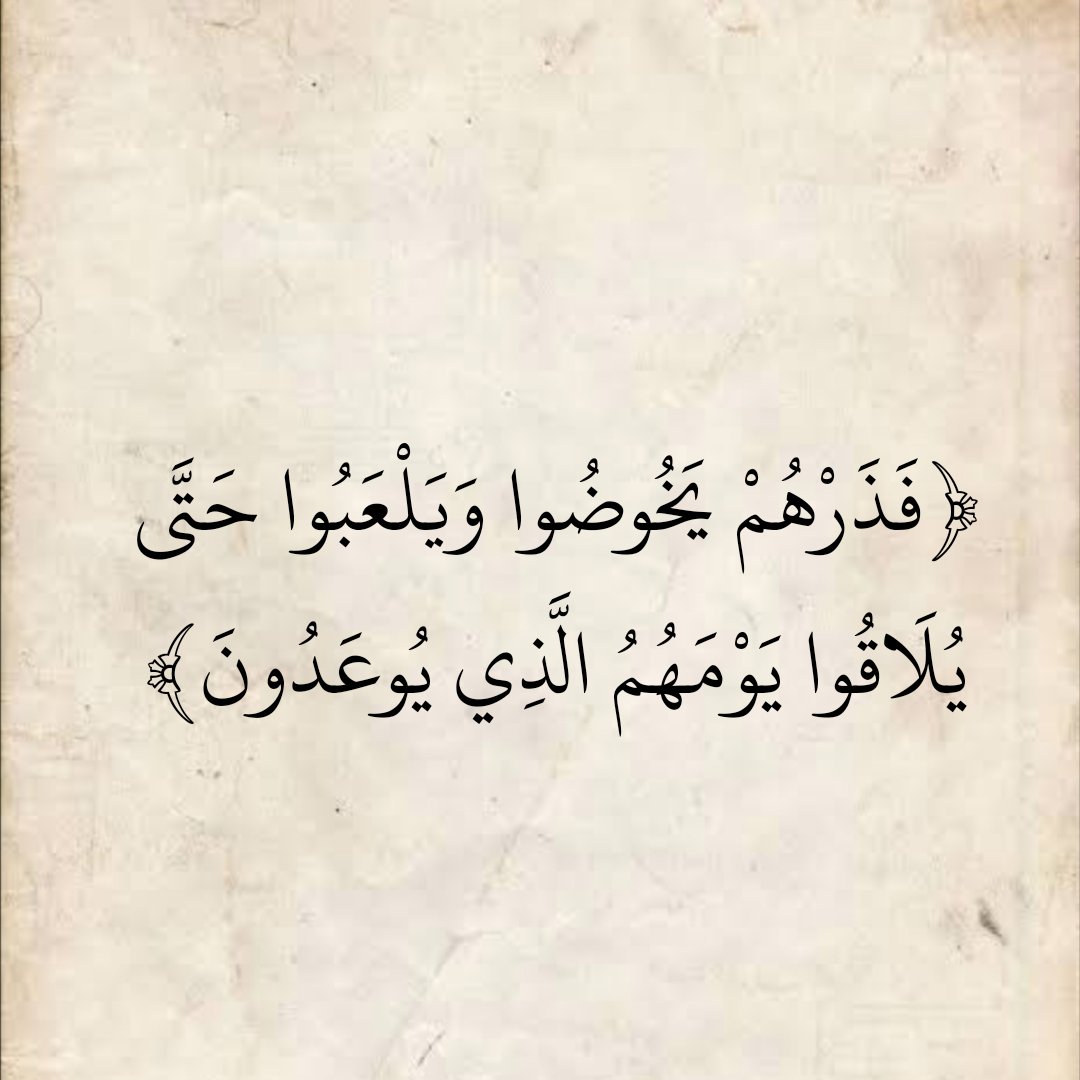 ﴿فَذَرْهُمْ يَخُوضُوا وَيَلْعَبُوا حَتَّى
يُلَاقُوا يَوْمَهُمُ الَّذِي يُوعَدُونَ﴾